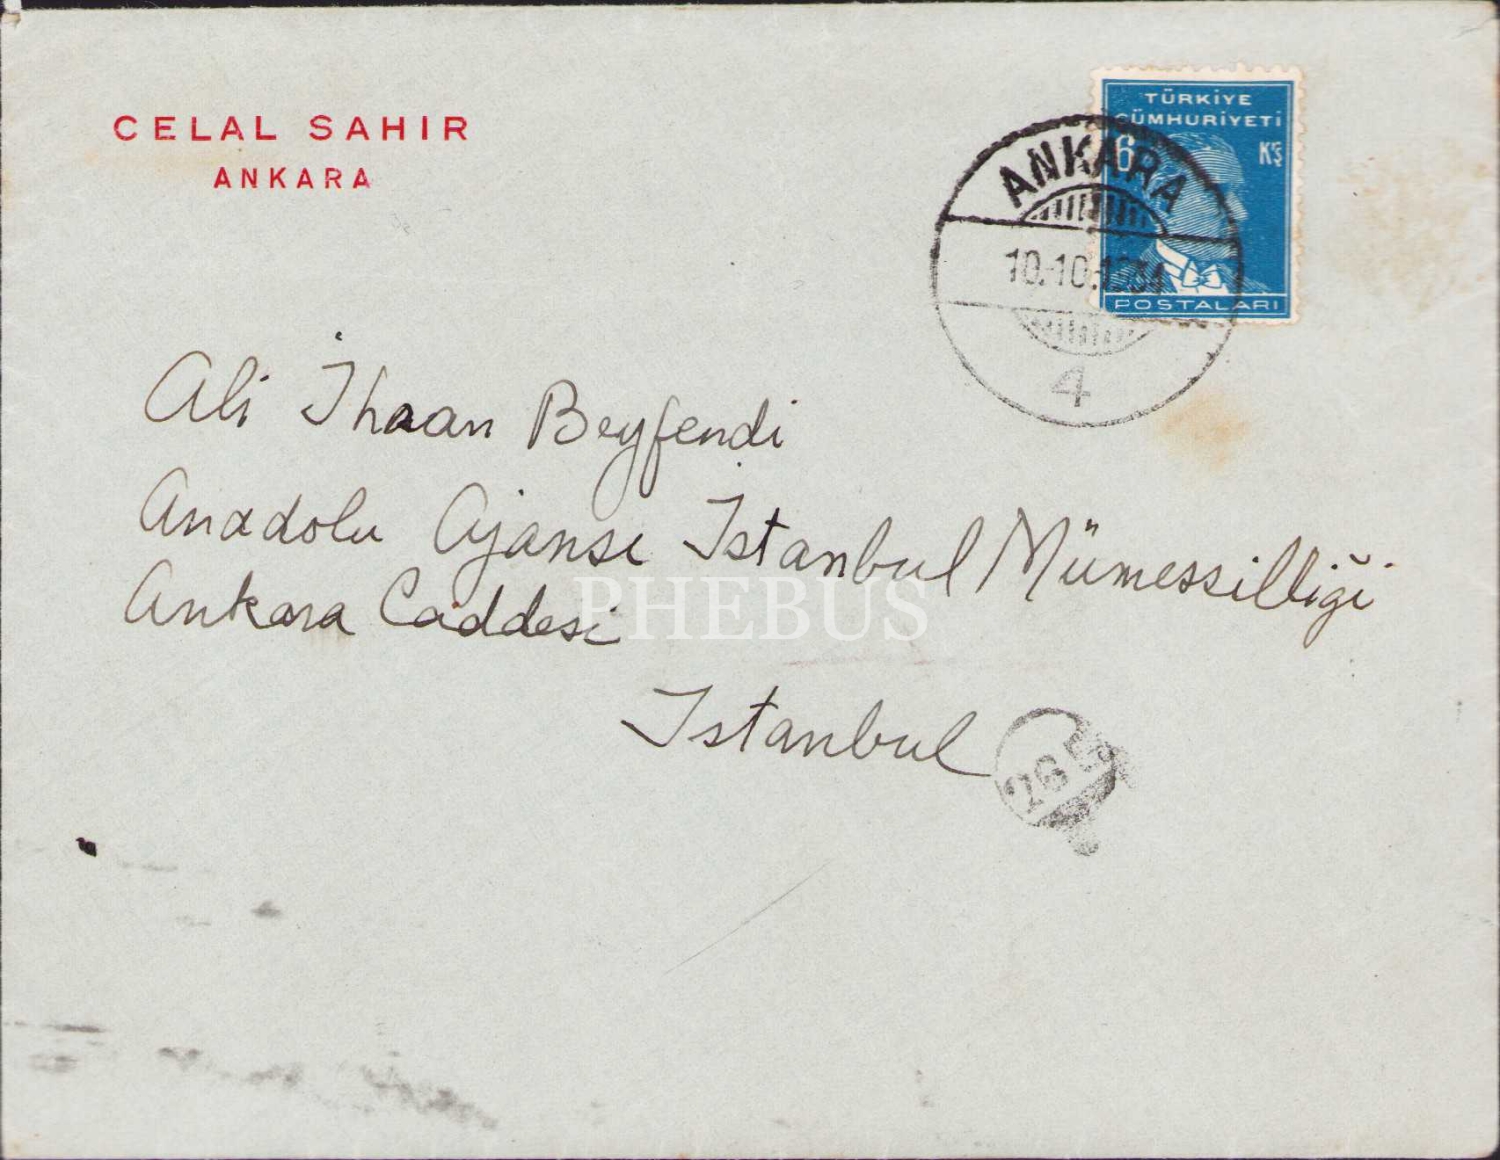 CELAL SAHIR
ANKARA
TÜRKİYE
CÜMHURİYETİ
6 Kş
POSTALARI
ANKARA
10.10.1934
4
Ali İhsan Beyfendi
Anadolu Ajansı İstanbul Mümessilliği
Ankara Caddesi
İstanbul
PHEBUS